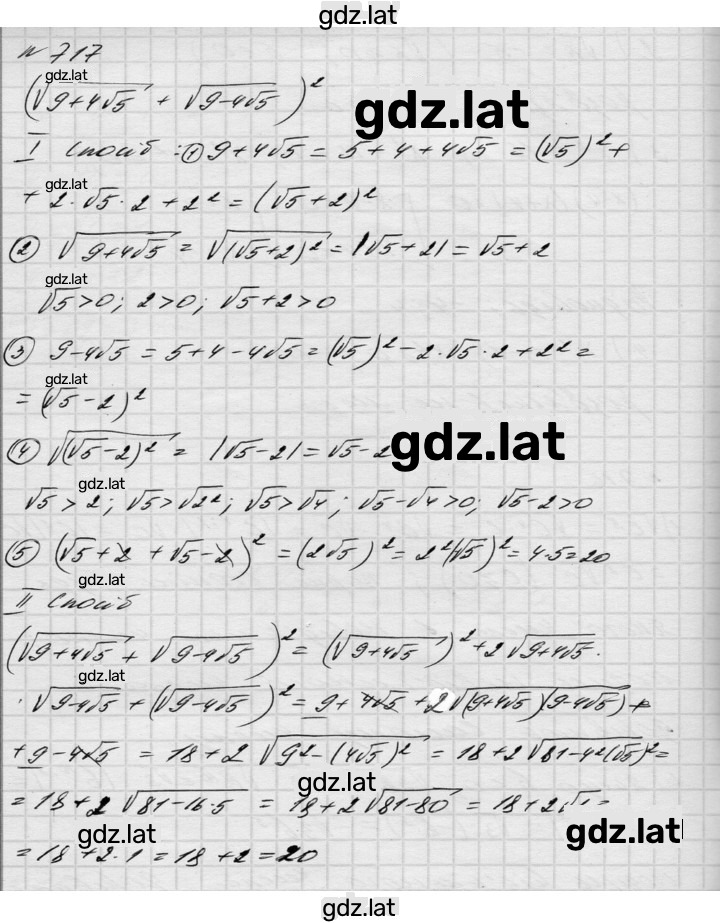 gdz.lat
№ 717
gdz.lat
(√(9+4√5) + √(9-4√5))²
gdz.lat
I спосіб : ① 9+4√5 = 5+4+4√5 = (√5)² +
gdz.lat
+ 2·√5·2 + 2² = (√5+2)²
② √(9+4√5) = √((√5+2)²) = |√5+2| = √5+2
gdz.lat
√5>0; 2>0; √5+2>0
③ 9-4√5 = 5+4-4√5 = (√5)² - 2·√5·2 + 2² =
gdz.lat
= (√5-2)²
④ √((√5-2)²) = |√5-2| = √5-2
gdz.lat
gdz.lat
√5 > 2; √5>√2²; √5>√4; √5-√4>0; √5-2>0
⑤ (√5+2 + √5-2)² = (2√5)² = 2²(√5)² = 4·5=20
gdz.lat
II спосіб
(√(9+4√5) + √(9-4√5))² = (√(9+4√5))² + 2√(9+4√5) ·
gdz.lat
· √(9-4√5) + (√(9-4√5))² = 9+4√5 + 2√((9+4√5)(9-4√5)) +
+ 9-4√5 = 18 + 2√(9²-(4√5)²) = 18+2√(81-4²(√5)²) =
gdz.lat
= 18+2√(81-16·5) = 18+2√(81-80) = 18+2√1 =
gdz.lat
gdz.lat
= 18+2·1 = 18+2 = 20
gdz.lat